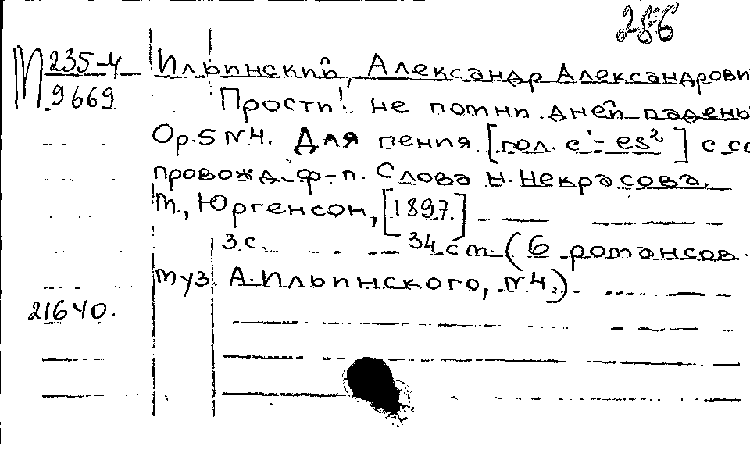 286
М 235-4 Ильинский, Александр Александрови
9669 Прости! не помни дней падень
Op.5 N4. Для пения [гол. e'-es²] с со
провожд. ф-п. Слова Н. Некрасова.
М., Юргенсон, [1897.]
3 с. 34 см (6 романсов
муз. А. Ильинского, N4.)
21640.